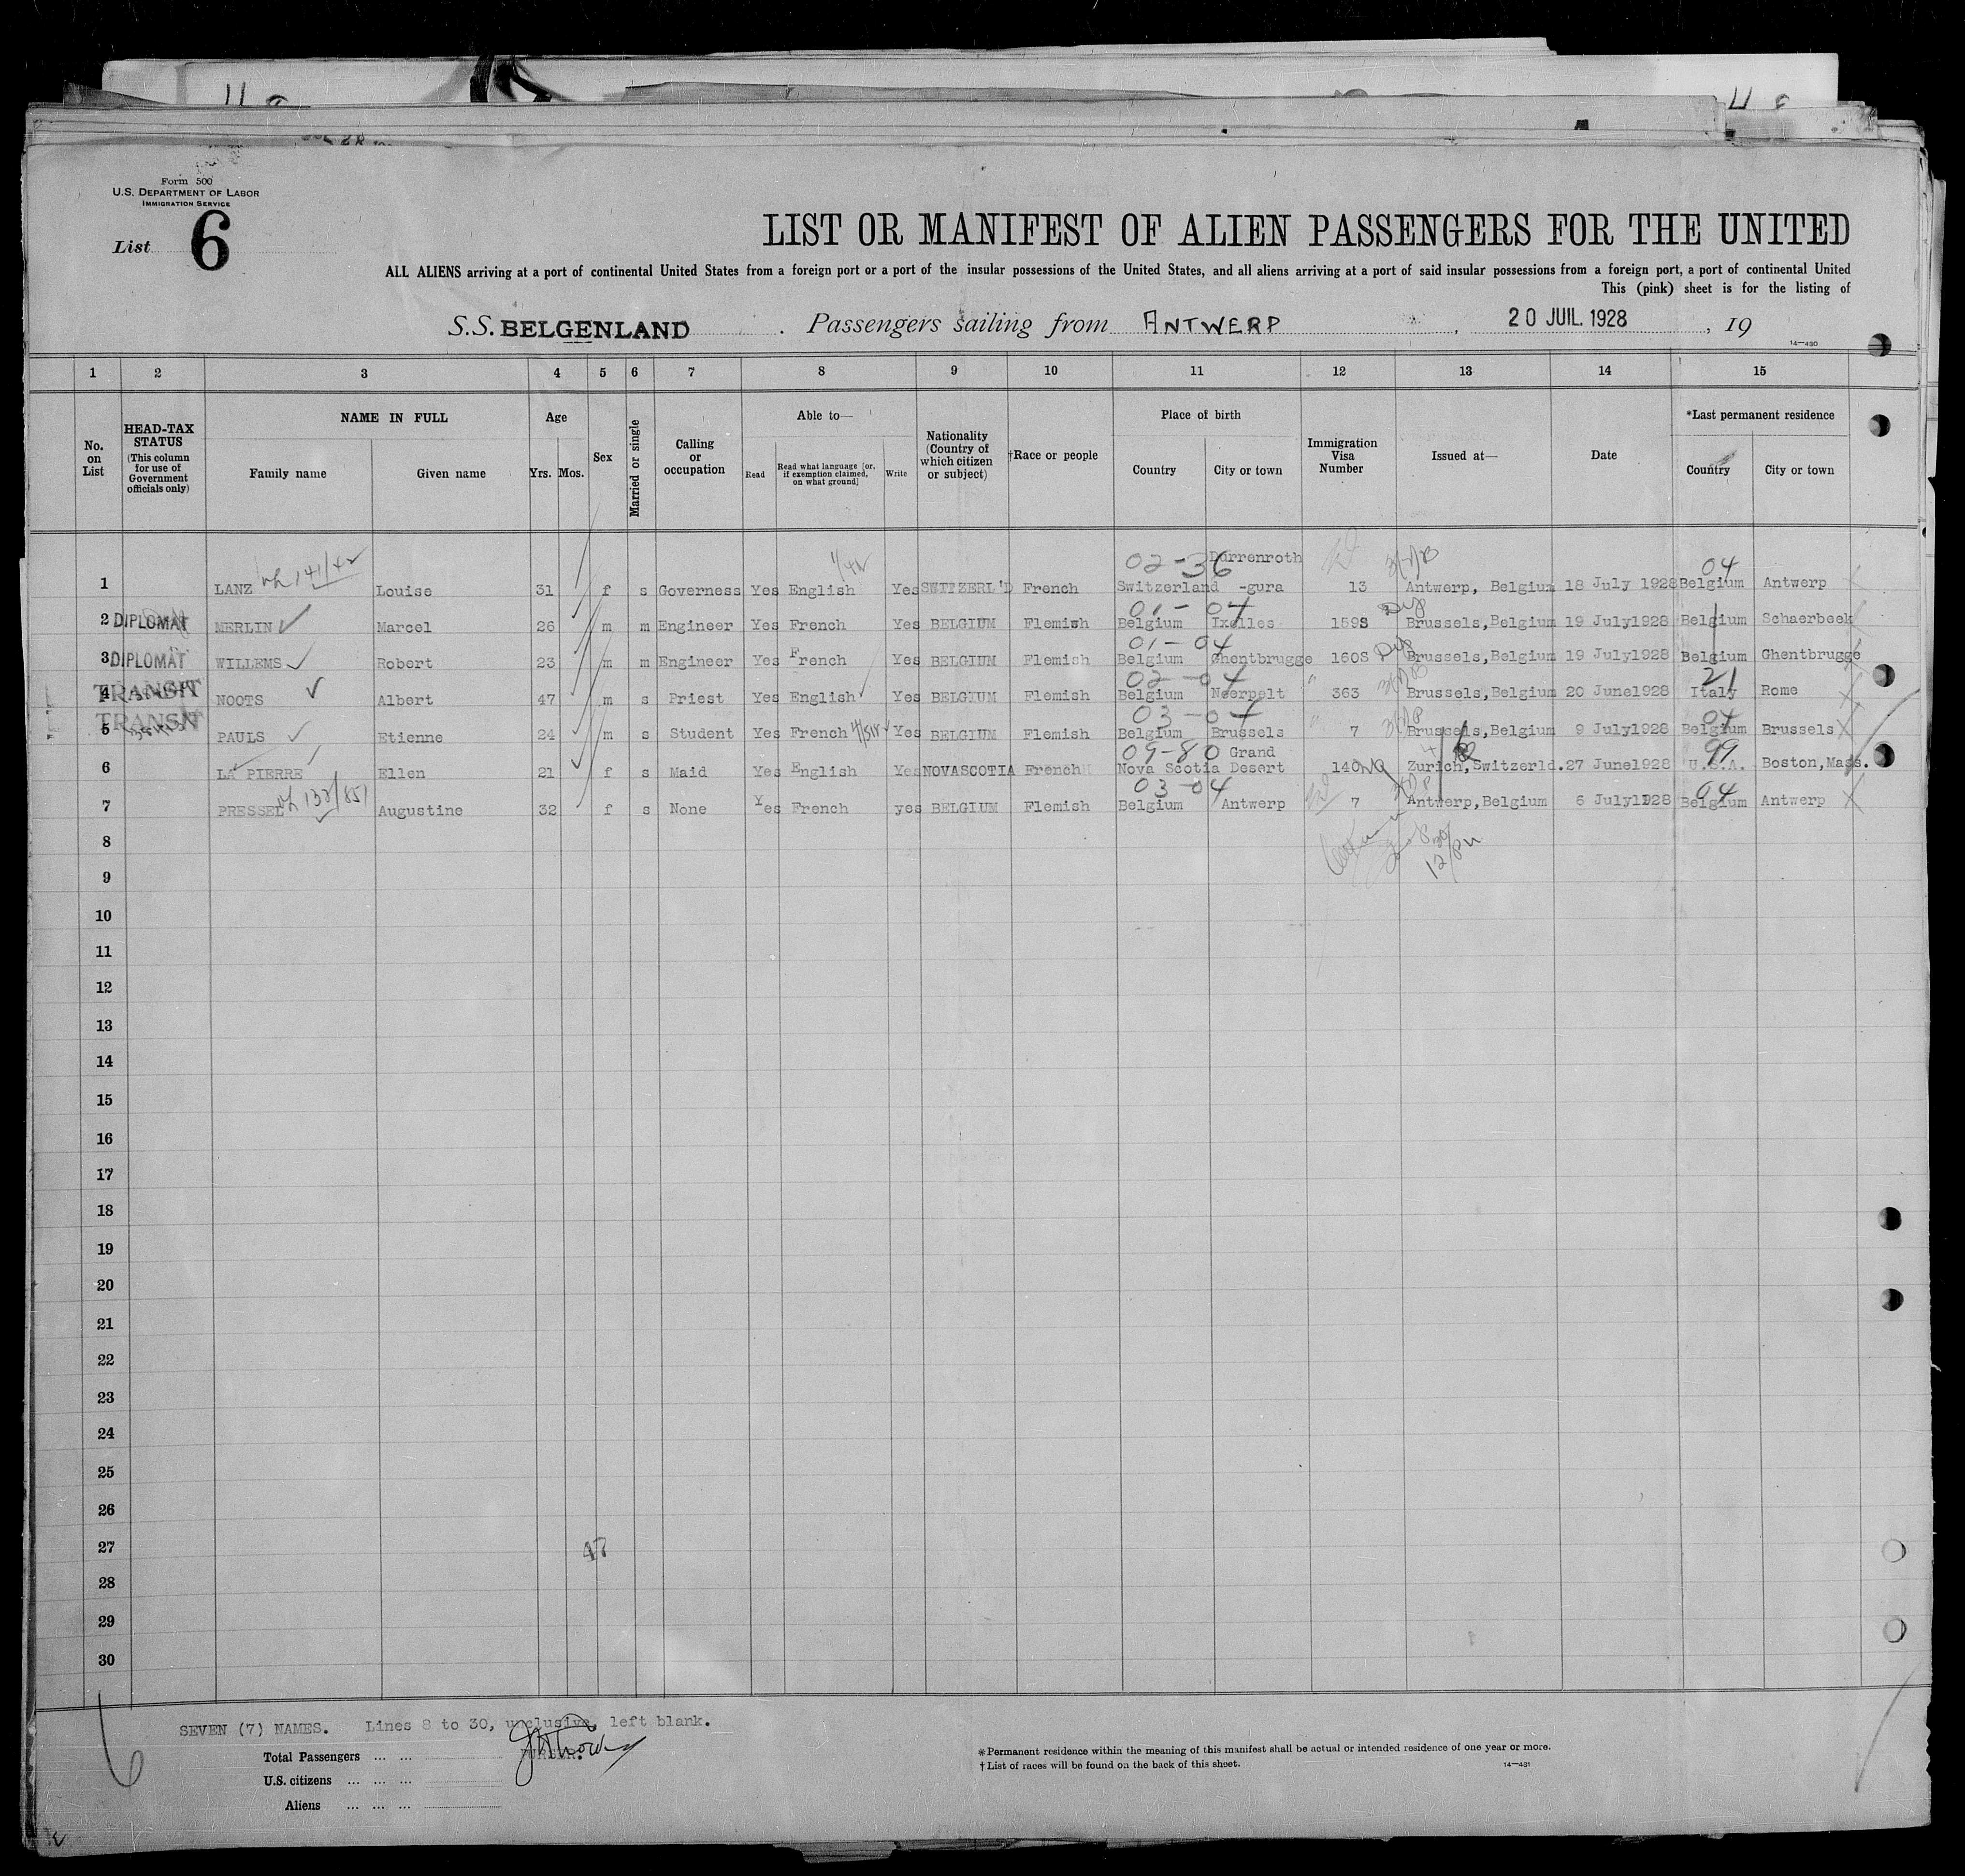 Form 500
U.S. DEPARTMENT OF LABOR
IMMIGRATION SERVICE
List 6
LIST OR MANIFEST OF ALIEN PASSENGERS FOR THE UNITED
ALL ALIENS arriving at a port of continental United States from a foreign port or a port of the insular possessions of the United States, and all aliens arriving at a port of said insular possessions from a foreign port, a port of continental United
This (pink) sheet is for the listing of
S.S. BELGENLAND . Passengers sailing from ANTWERP , 20 JUIL. 1928 , 19
14—430
1 2 3 4 5 6 7 8 9 10 11 12 13 14 15
No. on List
HEAD-TAX STATUS (This column for use of Government officials only)
NAME IN FULL
Family name Given name
Age
Yrs. Mos.
Sex
Married or single
Calling or occupation
Able to—
Read Read what language [or, if exemption claimed, on what ground] Write
Nationality (Country of which citizen or subject)
†Race or people
Place of birth
Country City or town
Immigration Visa Number
Issued at—
Date
*Last permanent residence
Country City or town
02-36 04
1 LANZ 141/42 Louise 31 f s Governess Yes English Yes SWITZERL'D French Switzerland -gura 13 Antwerp, Belgium 18 July 1928 Belgium Antwerp
01-04
2 DIPLOMAT MERLIN Marcel 26 m m Engineer Yes French Yes BELGIUM Flemish Belgium Ixelles 159S Brussels,Belgium 19 July1928 Belgium Schaerbeek
01-04
3 DIPLOMAT WILLEMS Robert 23 m m Engineer Yes French Yes BELGIUM Flemish Belgium Ghentbrugge 160S Brussels,Belgium 19 July1928 Belgium Ghentbrugge
02-04 21
4 TRANSIT NOOTS Albert 47 m s Priest Yes English Yes BELGIUM Flemish Belgium Neerpelt 363 Brussels,Belgium 20 June1928 Italy Rome
03-04 04
5 TRANSIT PAULS Etienne 24 m s Student Yes French Yes BELGIUM Flemish Belgium Brussels 7 Brussels,Belgium 9 July1928 Belgium Brussels
09-80 Grand 99
6 LA PIERRE Ellen 21 f s Maid Yes English Yes NOVASCOTIA French Nova Scotia Desert 140 NQ Zurich,Switzerld. 27 June1928 U.S.A. Boston,Mass.
03-04 04
7 PRESSEL 132/851 Augustine 32 f s None Yes French yes BELGIUM Flemish Belgium Antwerp 7 Antwerp,Belgium 6 July1928 Belgium Antwerp
8
9
10
11
12
13
14
15
16
17
18
19
20
21
22
23
24
25
26
27 47
28
29
30
SEVEN (7) NAMES. Lines 8 to 30, unclusive, left blank.
Total Passengers ... ...
U.S. citizens ... ... ...
Aliens ... ... ...
*Permanent residence within the meaning of this manifest shall be actual or intended residence of one year or more.
†List of races will be found on the back of this sheet.
14—431
6